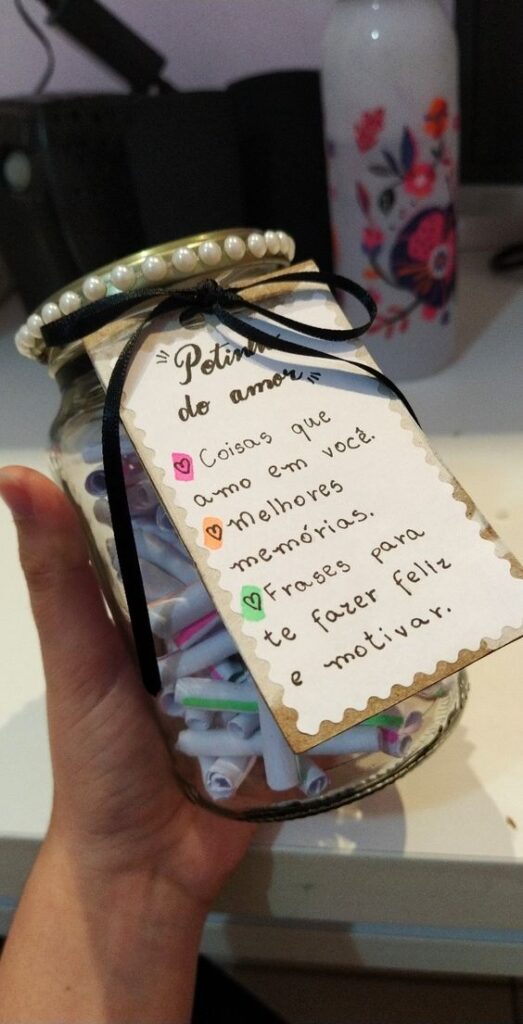 do amor
Coisas que
amo em você.
Melhores
memórias.
Frases para
te fazer feliz
e motivar.